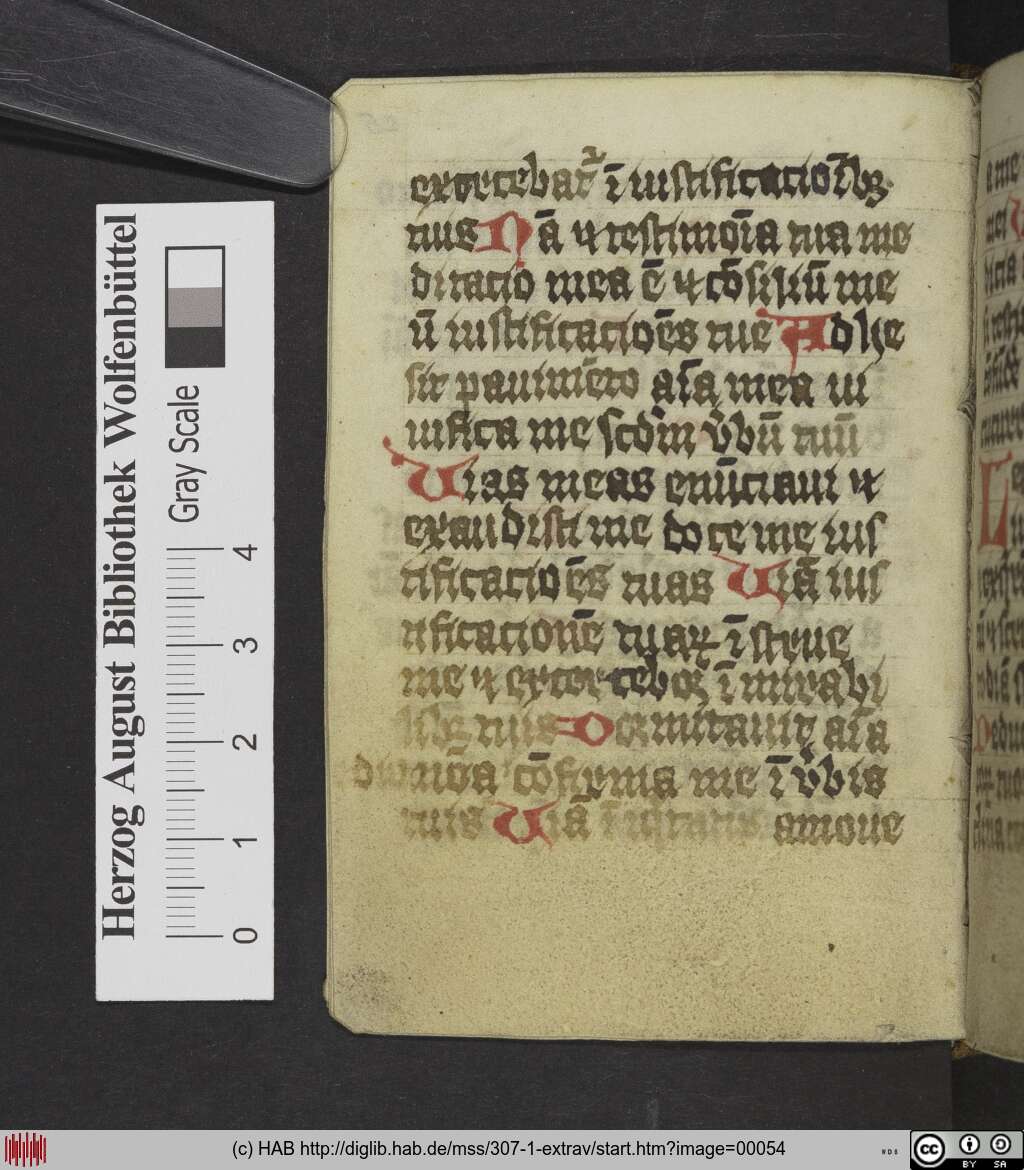 exercebat᷑ ī iustificacioīb⁊
tuis Nā ⁊ testimoīa tua me
ditacio mea ē ⁊ cōsiliū me
ū iustificacioēs tue Adhe
sit pauimēto aīa mea ui
uifica me scdm v̄bū tuū
Uias meas enūciaui ⁊
exaudisti me doce me ius
tificacioēs tuas Uiā ius
tificacionē tuaꝝ īstrue
me ⁊ exercebor ī mirabi
lib⁊ tuis Dormitauit aīa
mea cōfirma me ī v̄bis
tuis Uiā amoue
Herzog August Bibliothek Wolfenbüttel
Gray Scale
0 1 2 3 4
(c) HAB http://diglib.hab.de/mss/307-1-extrav/start.htm?image=00054
cc BY SA